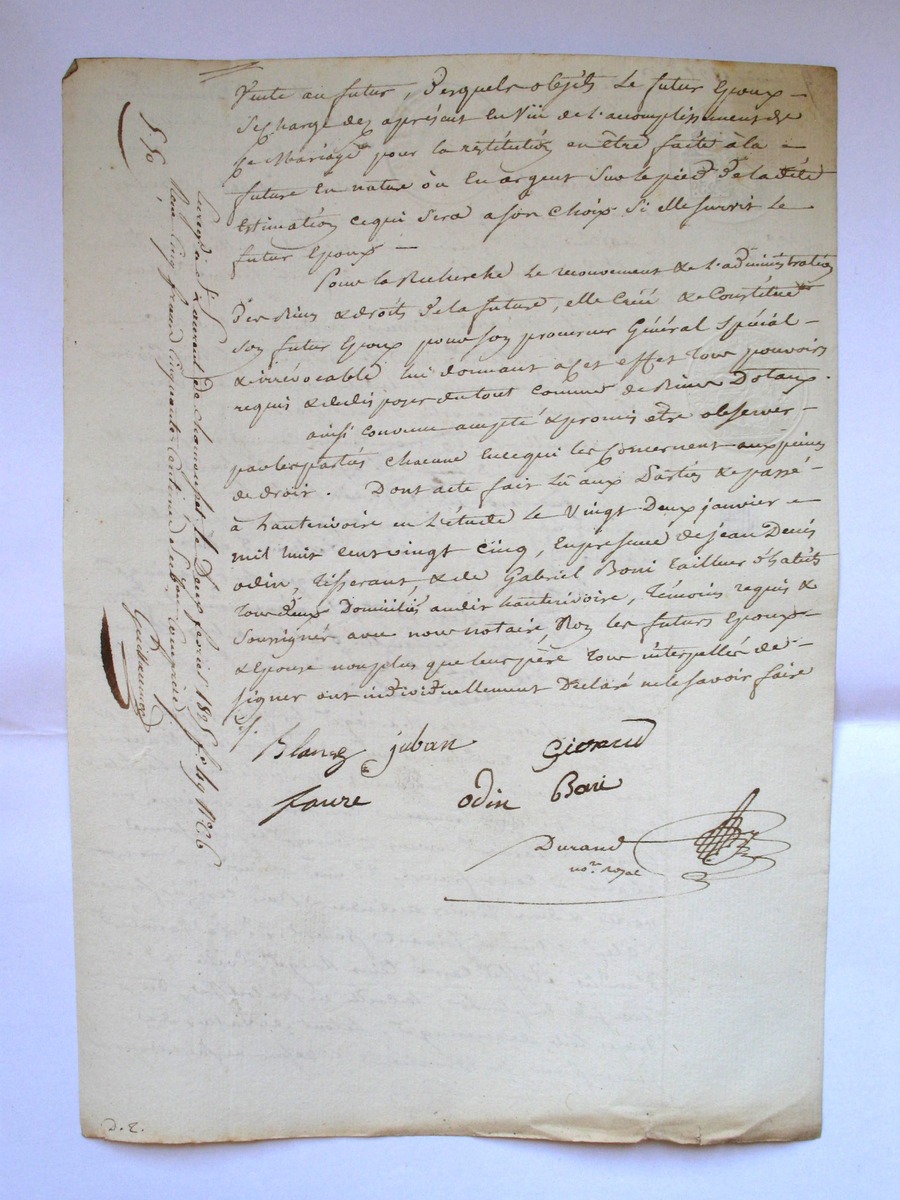 vente au futur, desquels objets le futur Epoux
se charge dez apresent en vüe de l'acomplissement de
ce Mariage pour la restitution en être faite à la
future en nature ou en argent sur le pied de la dite
Estimation ce qui sera a son choix si elle survit le
futur Epoux
Pour la Recherche le recouvrement & l'administration
des Biens & droits de la future, elle Créé & Constitue
son futur Epoux pour son procureur Général Spécial
& irrévocable lui donnant a cet effet tous pouvoirs
requis & de disposer du tout comme de Biens Dotaux.
ainsi convenu accepté & promis être observer
par les parties chacune en ce qui les Concernent aux peines
de droit. Dont acte fait lu aux Parties & passé
à hauterivoire en l'étude le Vingt Deux janvier
mil huit cent vingt cinq, en presence de jean Denis
odin, tisserant & de Gabriel Boni tailleur d'habits
tous deux Domiciliés audit hauterivoire, témoins requis &
soussignés avec nous notaire, Non les futurs Epoux
& Epouse non plus que leur père tous interpellés de
signer ont individuellement Déclaré ne le savoir faire
Blanc juban Giraud
faure odin Boni
Durand
no.re royal
Enreg.é à S.t Laurent de chamousset le Deux fevrier 1825 f.o 69
Reçu cinq francs cinquante centimes
Guillaumé
5 50
d. 2.